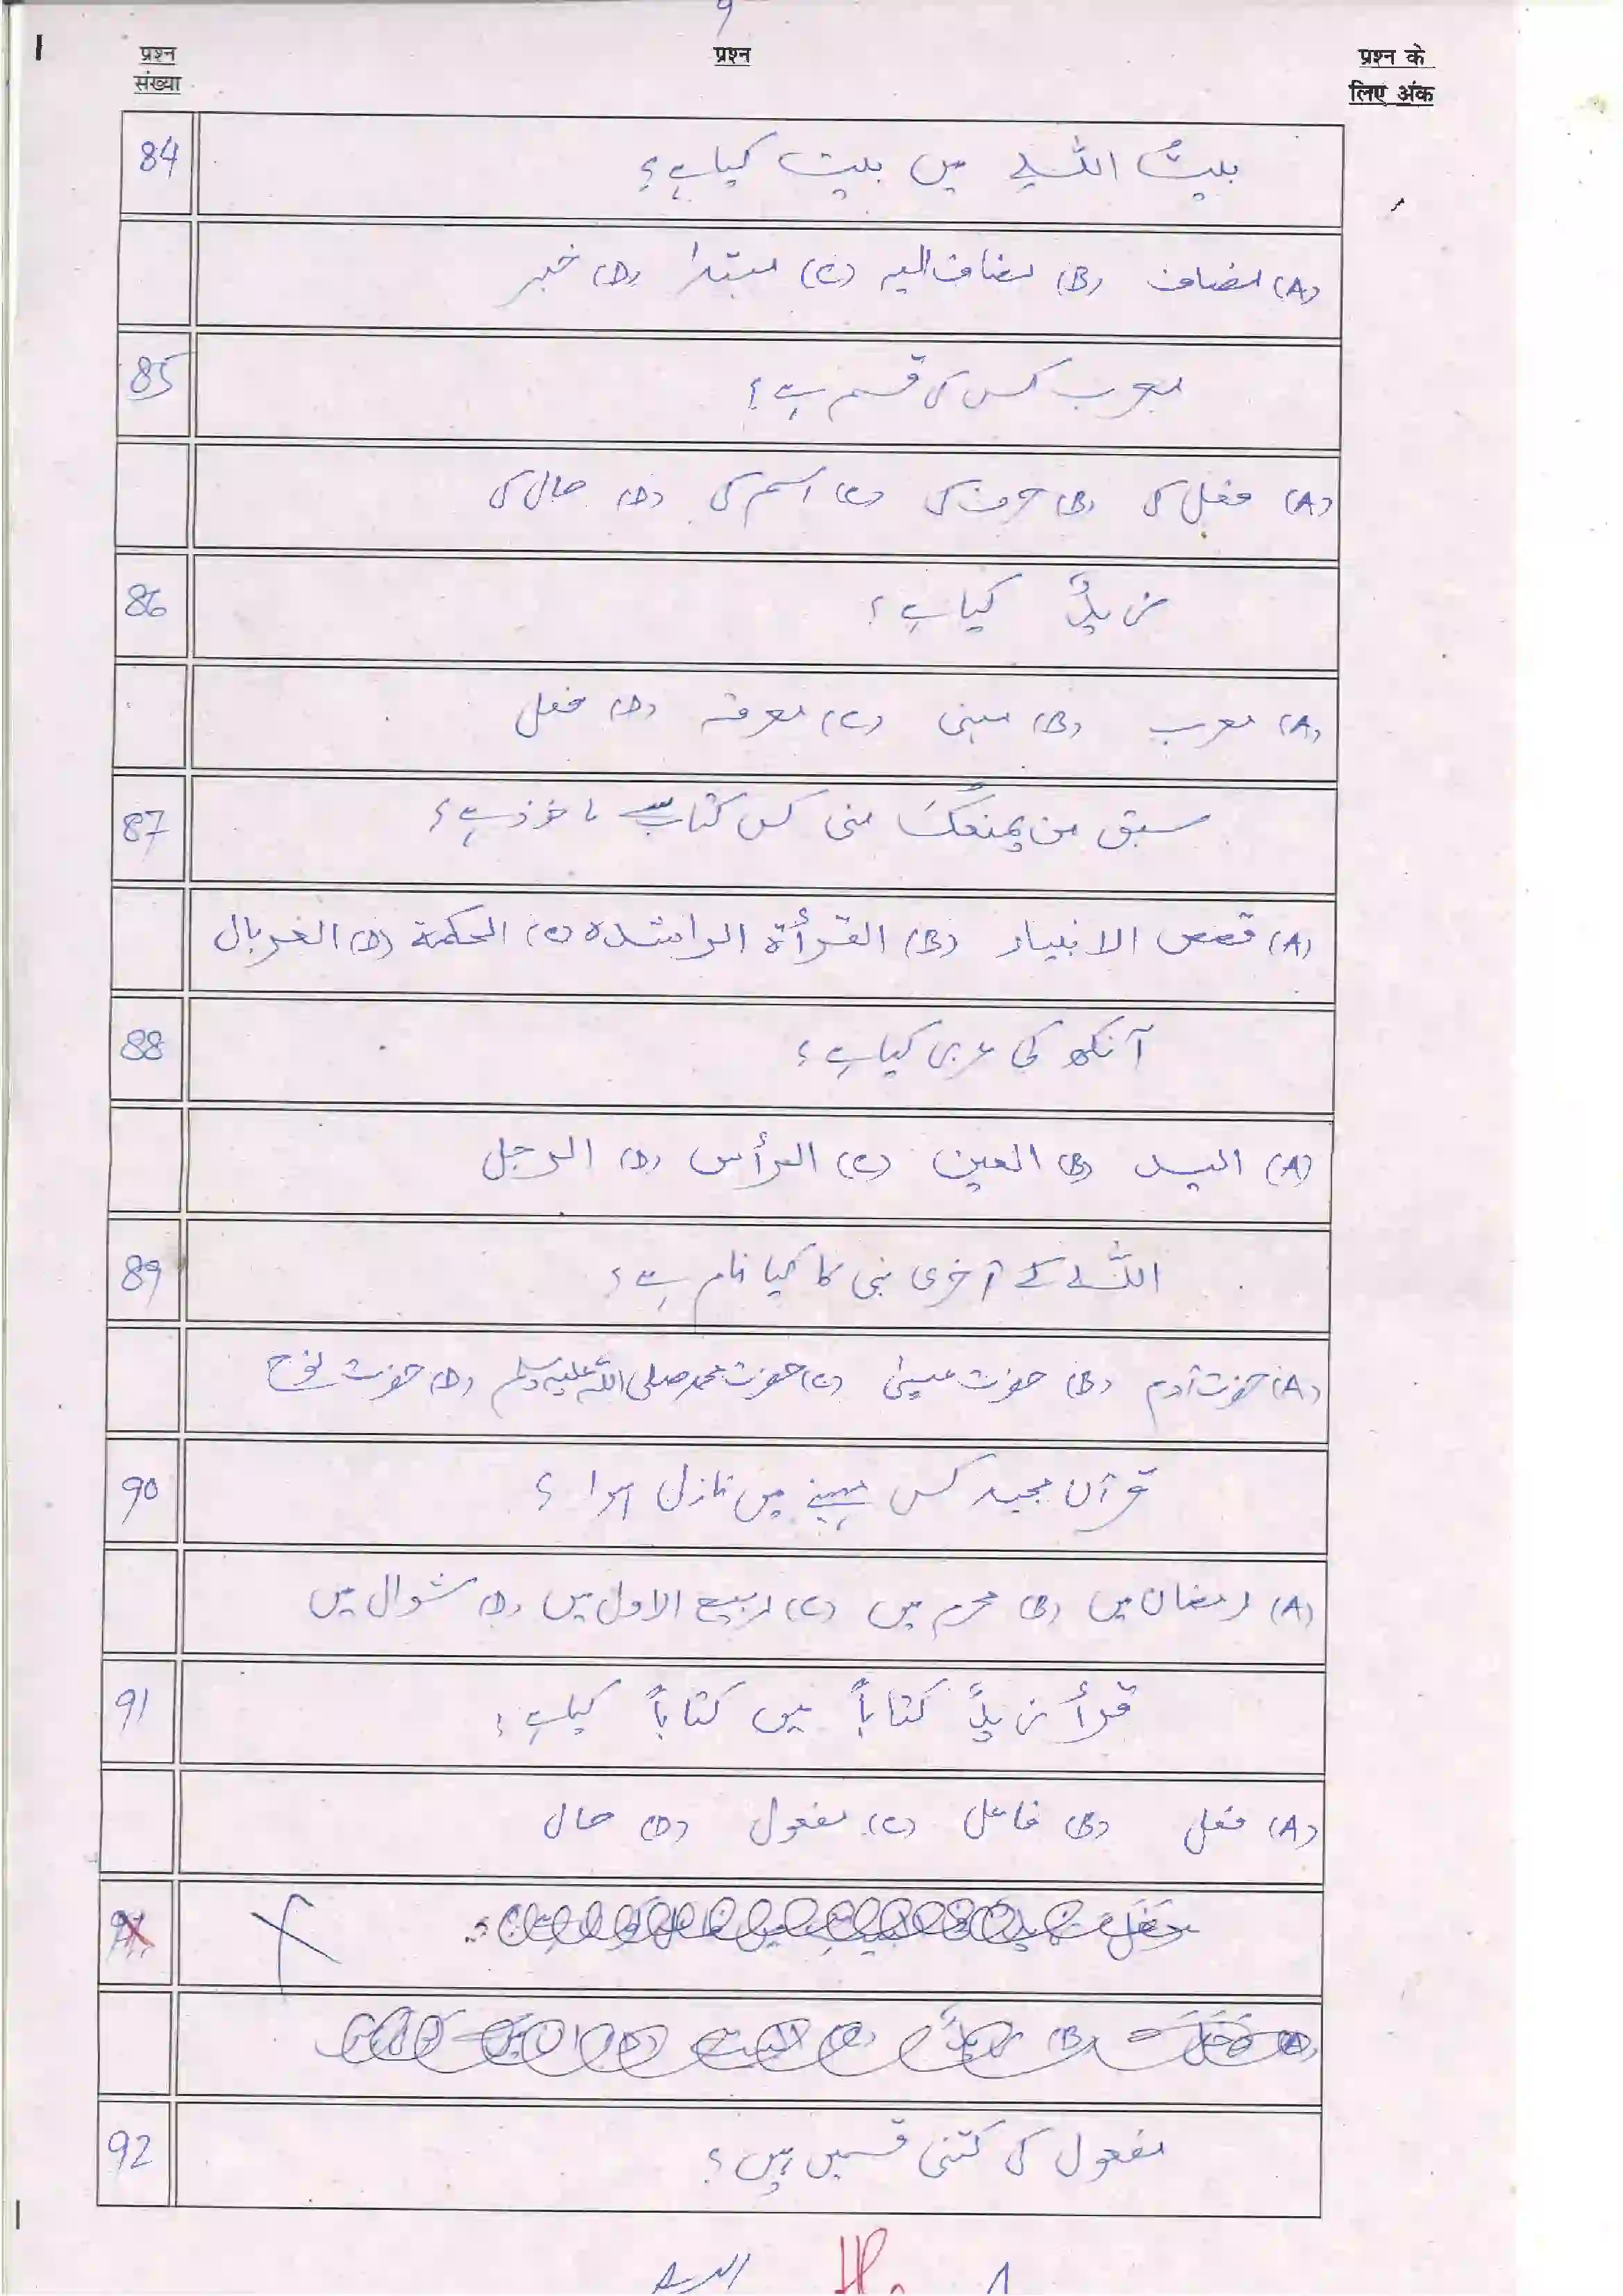 9
प्रश्न संख्या प्रश्न प्रश्न के लिए अंक
84 بیتُ اللہِ میں بیت کیا ہے؟
(A) مضاف (B) مضاف الیہ (C) مبتدا (D) خبر
85 معرب کس کی قسم ہے؟
(A) فعل کی (B) حرف کی (C) اسم کی (D) حال کی
86 زیدٌ کیا ہے؟
(A) معرب (B) مبنی (C) معرفہ (D) فعل
87 سبق من یمنعک منی کس کتاب سے ماخوذ ہے؟
(A) قصص الانبیاء (B) القرأة الراشدہ (C) الحکمة (D) الغربال
88 آنکھ کی عربی کیا ہے؟
(A) الید (B) العین (C) الرأس (D) الرجل
89 اللہ کے آخری نبی کا کیا نام ہے؟
(A) حضرت آدم (B) حضرت عیسیٰ (C) حضرت محمد صلی اللہ علیہ وسلم (D) حضرت نوح
90 قرآن مجید کس مہینے میں نازل ہوا؟
(A) رمضان میں (B) محرم میں (C) ربیع الاول میں (D) شوال میں
91 قرأ زیدٌ کتاباً میں کتاباً کیا ہے؟
(A) فعل (B) فاعل (C) مفعول (D) حال
92 مفعول کی کتنی قسمیں ہیں؟